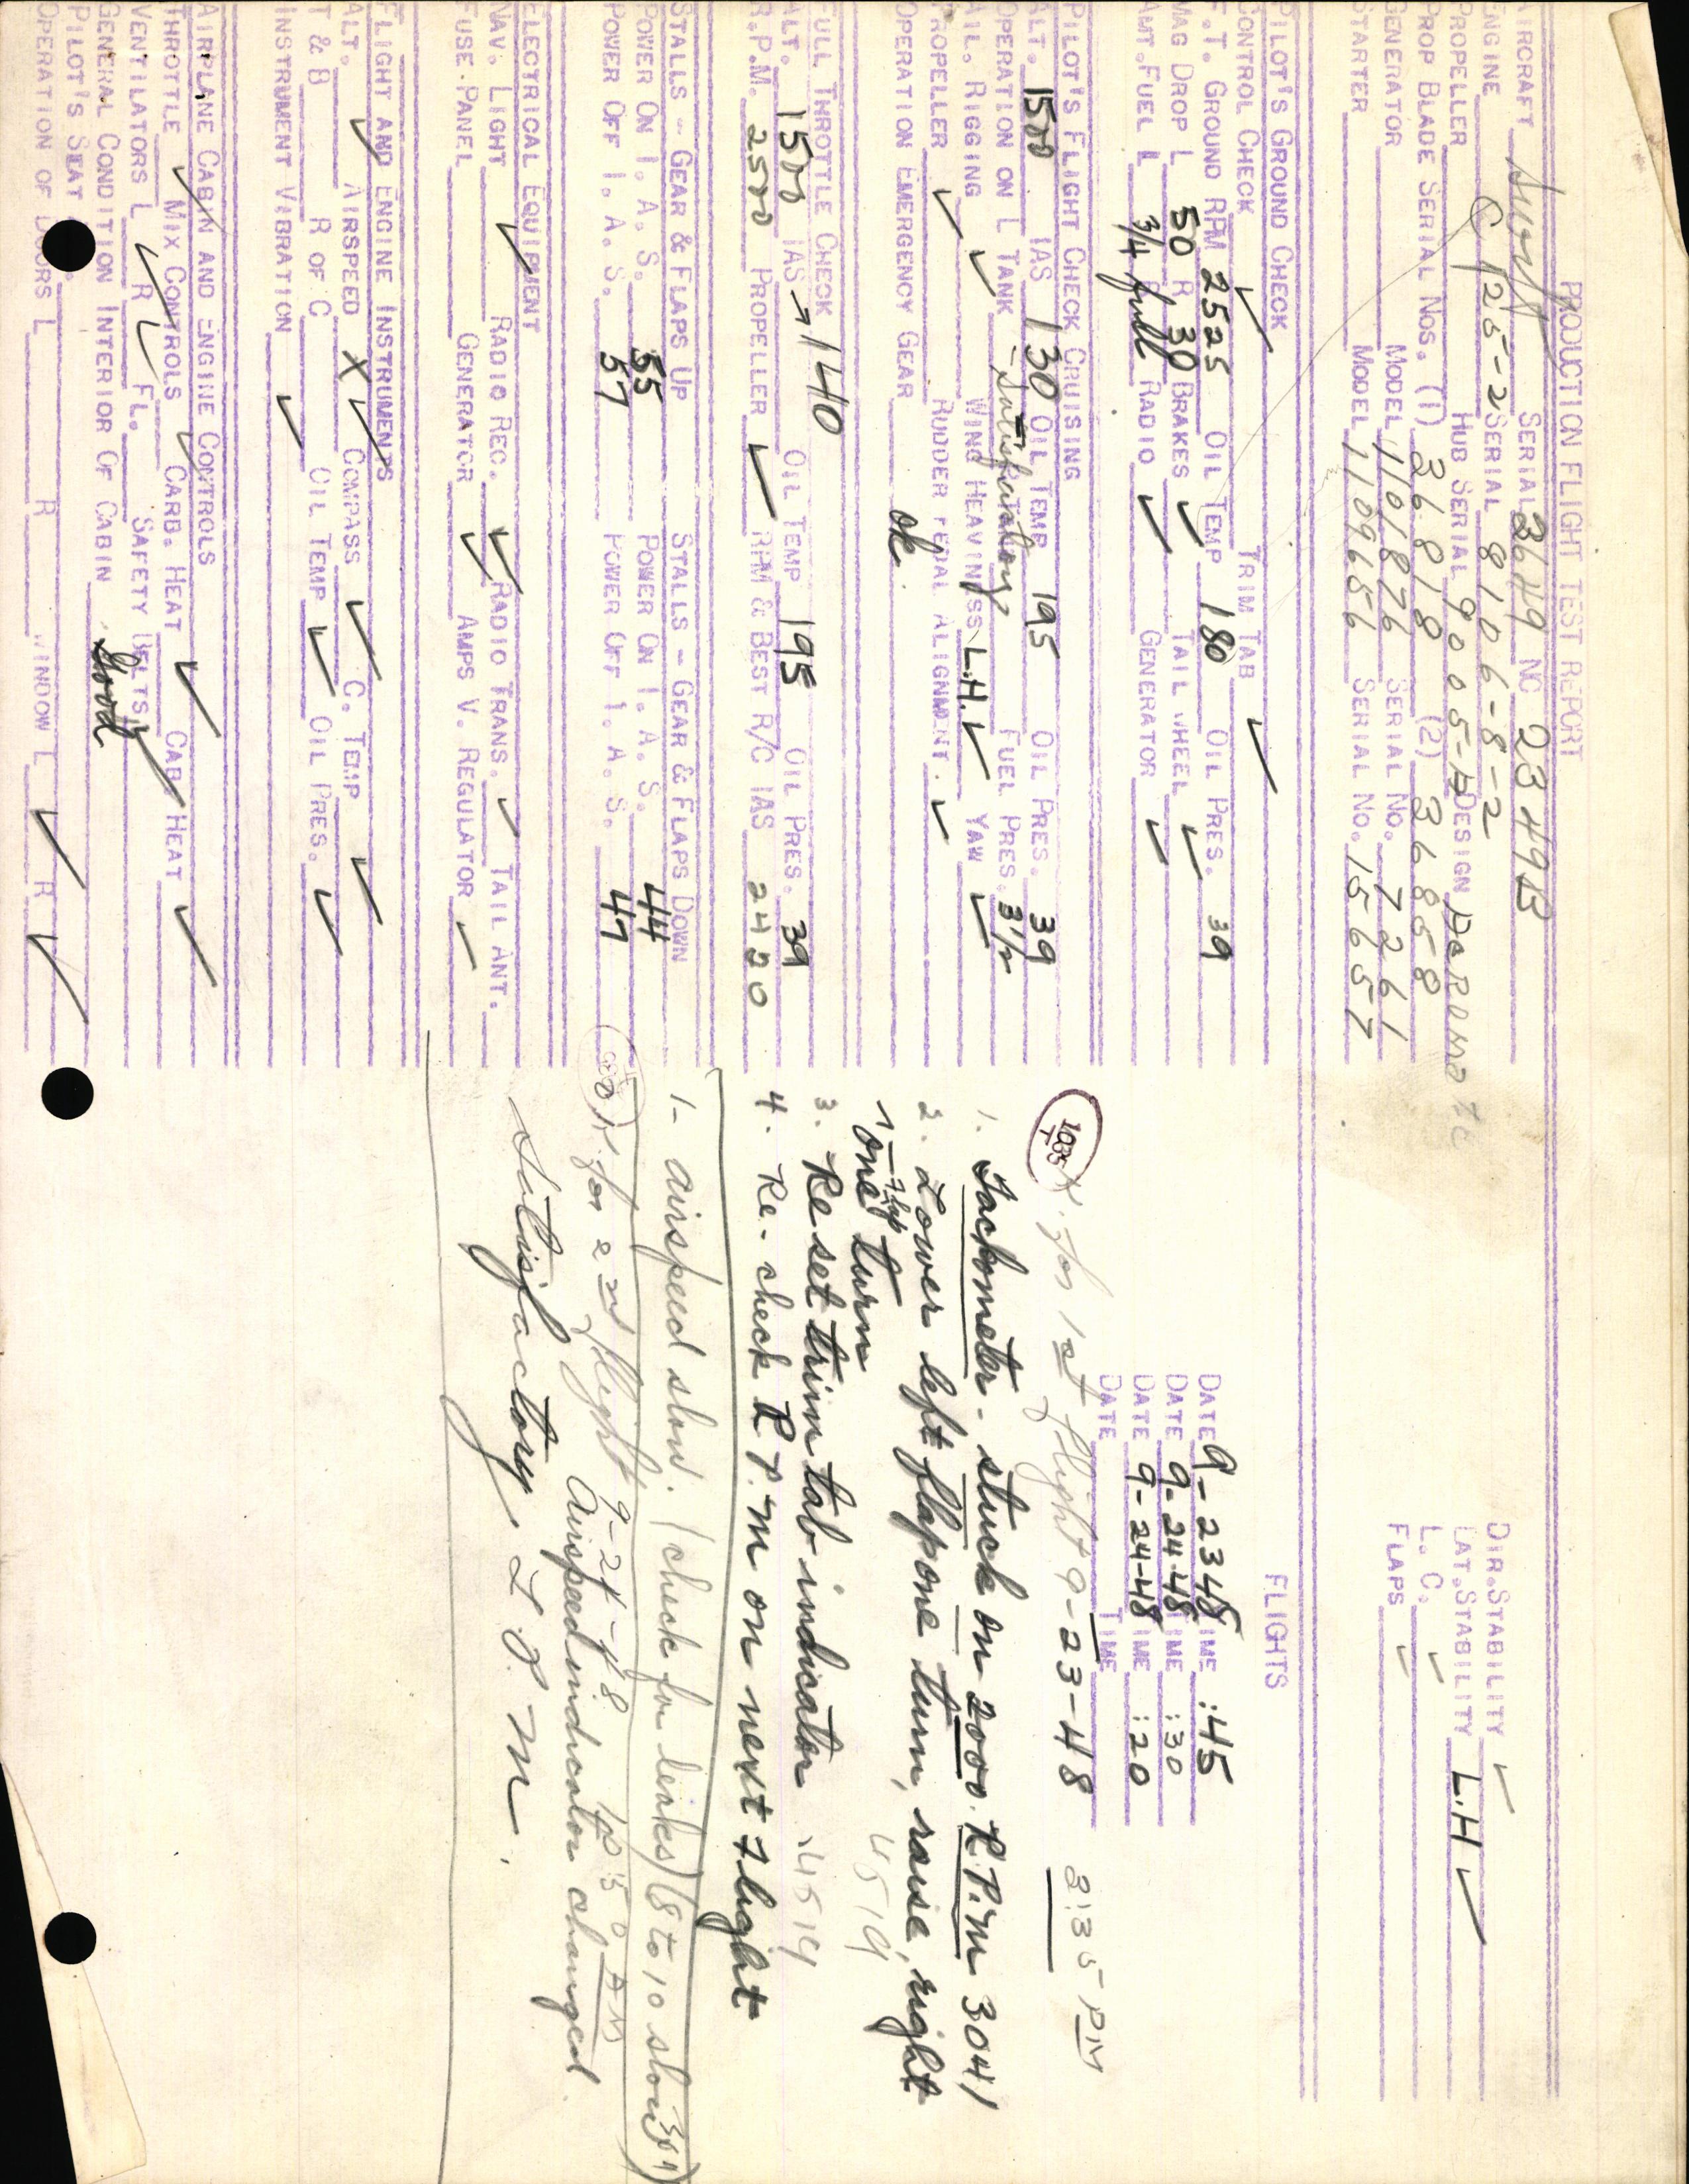 PRODUCTION FLIGHT TEST REPORT
AIRCRAFT Swift SERIAL 3649 NC 2349B DIR. STABILITY ✓
ENGINE C 125-2 SERIAL 8106-8-2 LAT. STABILITY L.H ✓
PROPELLER HUB SERIAL 90005-A DESIGN L. C. ✓
PROP BLADE SERIAL NOS. (1) 36818 (2) 36858 FLAPS ✓
GENERATOR MODEL 1101876 SERIAL NO. 7261
STARTER MODEL 1109656 SERIAL NO. 15657
PILOT'S GROUND CHECK FLIGHTS
CONTROL CHECK ✓ TRIM TAB ✓
F.T. GROUND RPM 2525 OIL TEMP 180 OIL PRES. 39 DATE 9-23-48 TIME :45
MAG DROP L 50 R 30 BRAKES ✓ TAIL WHEEL ✓ DATE 9-24-48 TIME :30
AMT. FUEL L 3/4 full RADIO ✓ GENERATOR ✓ DATE 9-24-48 TIME :20
DATE TIME
PILOT'S FLIGHT CHECK CRUISING
ALT. 1500 IAS 130 OIL TEMP 195 OIL PRES. 39
OPERATION ON L TANK - Satisfactory FUEL PRES. 3 1/2
AIL. RIGGING ✓ WING HEAVINESS L.H. ✓ YAW ✓
PROPELLER ✓ RUDDER PEDAL ALIGNMENT. ✓
OPERATION EMERGENCY GEAR ok.
FULL THROTTLE CHECK
ALT. 1500 IAS → 140 OIL TEMP 195 OIL PRES. 39
R.P.M. 2500 PROPELLER ✓ RPM & BEST R/C IAS 2420
STALLS - GEAR & FLAPS UP STALLS - GEAR & FLAPS DOWN
POWER ON I. A. S. 55 POWER ON I. A. S. 44
POWER OFF I. A. S. 57 POWER OFF I. A. S. 47
ELECTRICAL EQUIPMENT
NAV. LIGHT ✓ RADIO REC. ✓ RADIO TRANS. ✓ TAIL ANT.
FUSE PANEL GENERATOR ✓ AMPS V. REGULATOR ✓
FLIGHT AND ENGINE INSTRUMENTS
ALT. ✓ AIRSPEED X ✓ COMPASS ✓ C. TEMP ✓
T & B R OF C OIL TEMP ✓ OIL PRES. ✓
INSTRUMENT VIBRATION ✓
AIRPLANE CABIN AND ENGINE CONTROLS
THROTTLE ✓ MIX CONTROLS ✓ CARB. HEAT ✓ CAB HEAT ✓
VENTILATORS L ✓ R ✓ FL. SAFETY BELTS ✓
GENERAL CONDITION INTERIOR OF CABIN Good
PILOT'S SEAT
OPERATION OF DOORS L R WINDOW L ✓ R ✓
for 1st flight 9-23-48 2:35 PM
1. Tachometer - stuck on 2000. R.P.M 3041
2. Lower left flap one turn, raise, right
1 - flap
one turn 4519
3. Reset trim tab indicator 4514
4. Re-check R.P.M on next flight
1- airspeed slow. (check for leaks) (8 to 10 slow)
for 2nd flight 9-24-48 AM
Airspeed indicator changed.
Satisfactory.